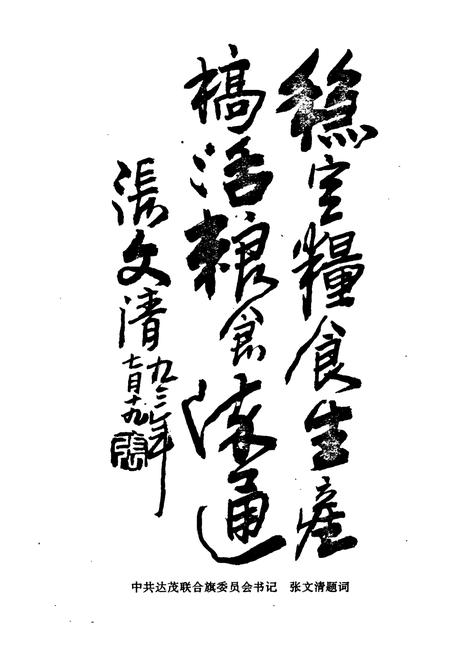 稳定糧食生產
搞活粮食流通
張文清
九三年
七月十九
中共达茂联合旗委员会书记 张文清题词